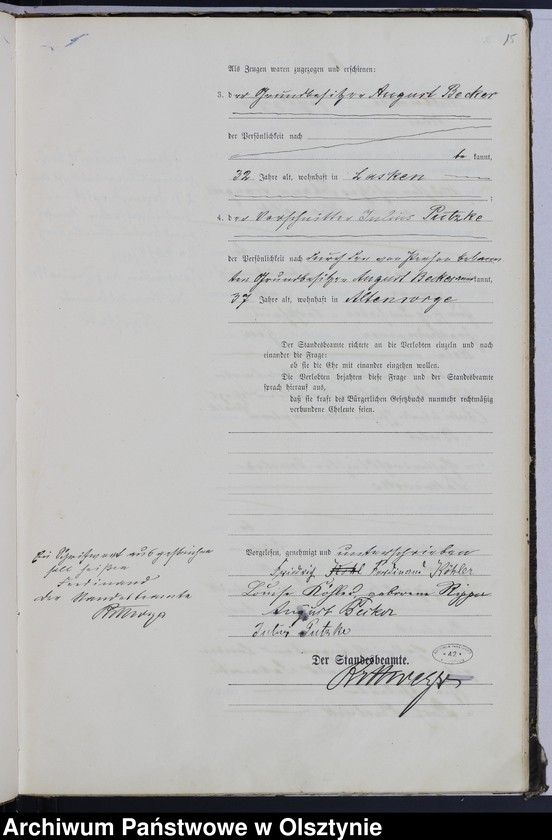 15
Als Zeugen waren zugezogen und erschienen:
3. der Grundbesitzer August Becker
der Persönlichkeit nach
be kannt,
32 Jahre alt, wohnhaft in Lasken
;
4. der Vorschnitter Julius Putzke
der Persönlichkeit nach durch den von Person bekann
ten Grundbesitzer August Becker kannt,
37 Jahre alt, wohnhaft in Altensorge
Der Standesbeamte richtete an die Verlobten einzeln und nach
einander die Frage:
ob sie die Ehe mit einander eingehen wollen.
Die Verlobten bejahten diese Frage und der Standesbeamte
sprach hierauf aus,
daß sie kraft des Bürgerlichen Gesetzbuchs nunmehr rechtmäßig
verbundene Eheleute seien.
Vorgelesen, genehmigt und unterschrieben
Ein Schriftwort ausgestrichen
soll heißen
Ferdinand
Der Standesbeamte
Friedrich Ferdinand Köhler
Louise Köhler geborene
August Becker
Julius Putzke
Der Standesbeamte.
42
Archiwum Państwowe w Olsztynie